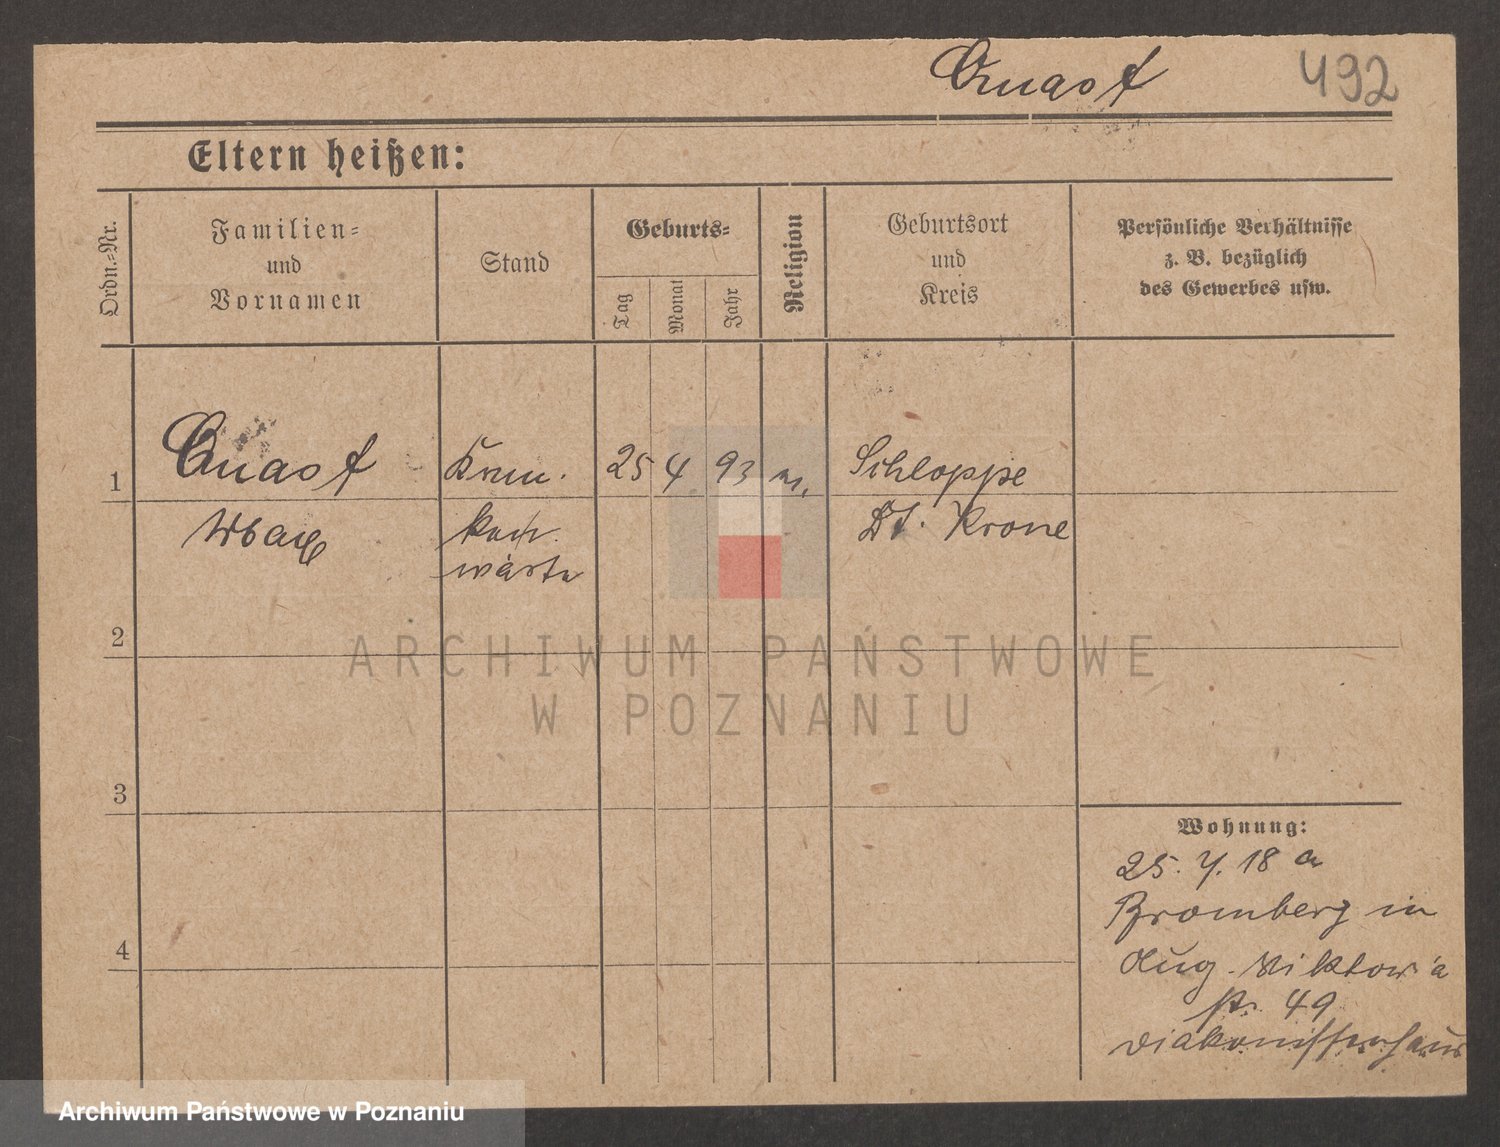 Quast 492
Eltern heißen:
Ordn.=Nr.
Familien=
und
Vornamen
Stand
Geburts=
Tag
Monat
Jahr
Religion
Geburtsort
und
Kreis
Persönliche Verhältnisse
z. B. bezüglich
des Gewerbes usw.
1 Quast 25 4 93 Schloppe
Dt. Krone
wärter
2
3
4
Wohnung:
25. 7. 18 a
Bromberg in
Aug. Viktoria
str. 49
Diakonissenhaus
ARCHIWUM PAŃSTWOWE
W POZNANIU
Archiwum Państwowe w Poznaniu